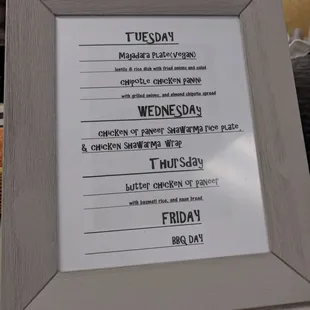 TUESDAY
Majadara Plate(vegan)
lentils & rice dish with fried onions and salad
Chipotle Chicken Panini
with grilled onions, and almond chipotle spread
WEDNESDAY
Chicken or Paneer Shawarma Rice Plate
& Chicken Shawarma Wrap
Thursday
Butter Chicken or Paneer
with basmati rice, and naan bread
FRIDAY
BBQ DAY